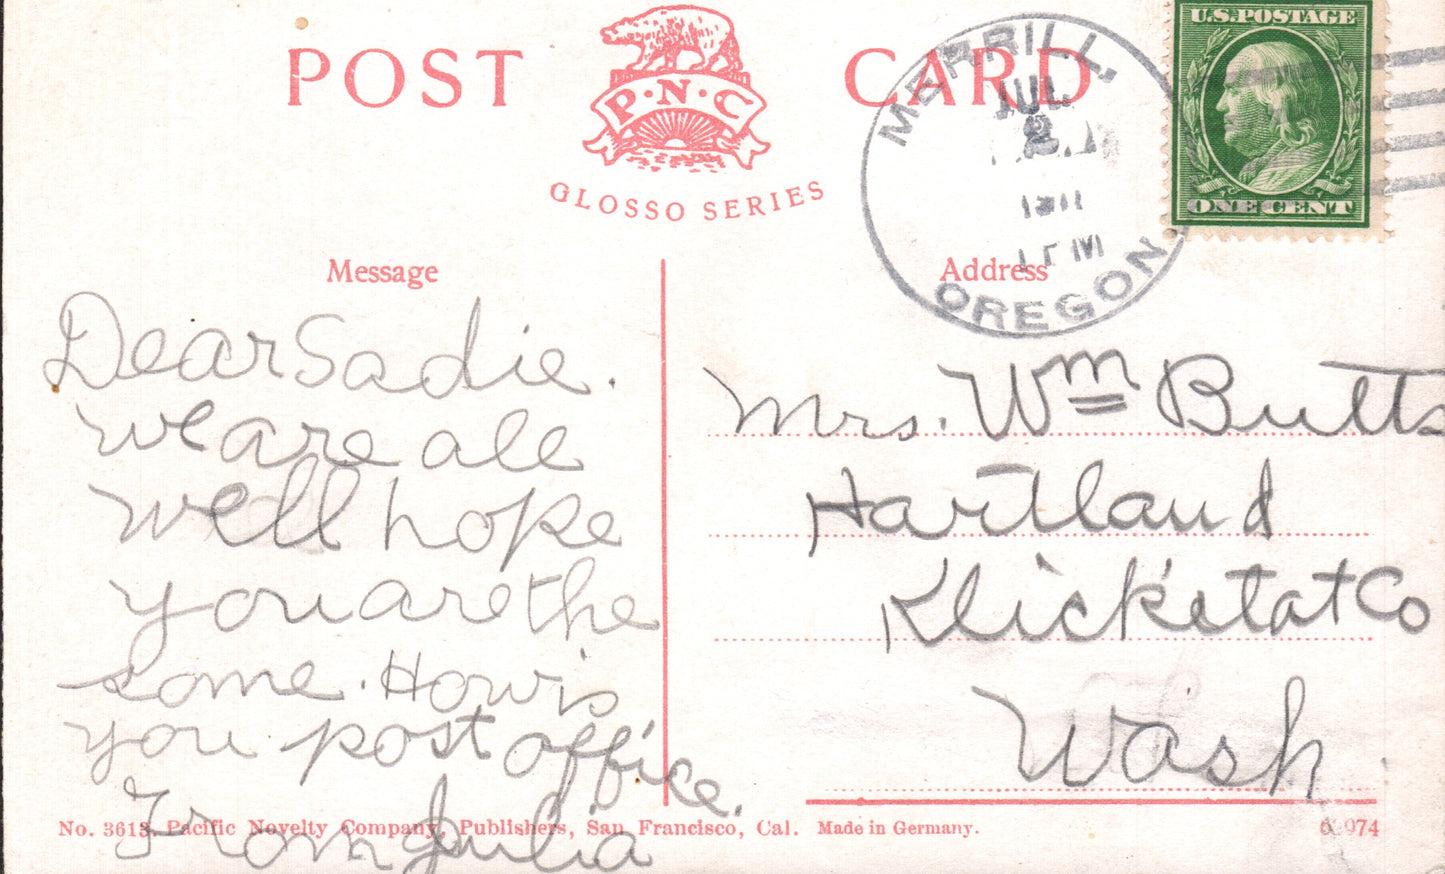 POST CARD
P·N·C
GLOSSO SERIES
U.S. POSTAGE
ONE CENT
MERRILL.
JUL
2
1911
OREGON
Message
Dear Sadie.
we are all
well hope
you are the
some. How is
you post office.
From Julia
Address
Mrs. Wm Butts
Hartland
Klicketat Co
Wash
No. 3613 Pacific Novelty Company, Publishers, San Francisco, Cal. Made in Germany.
974